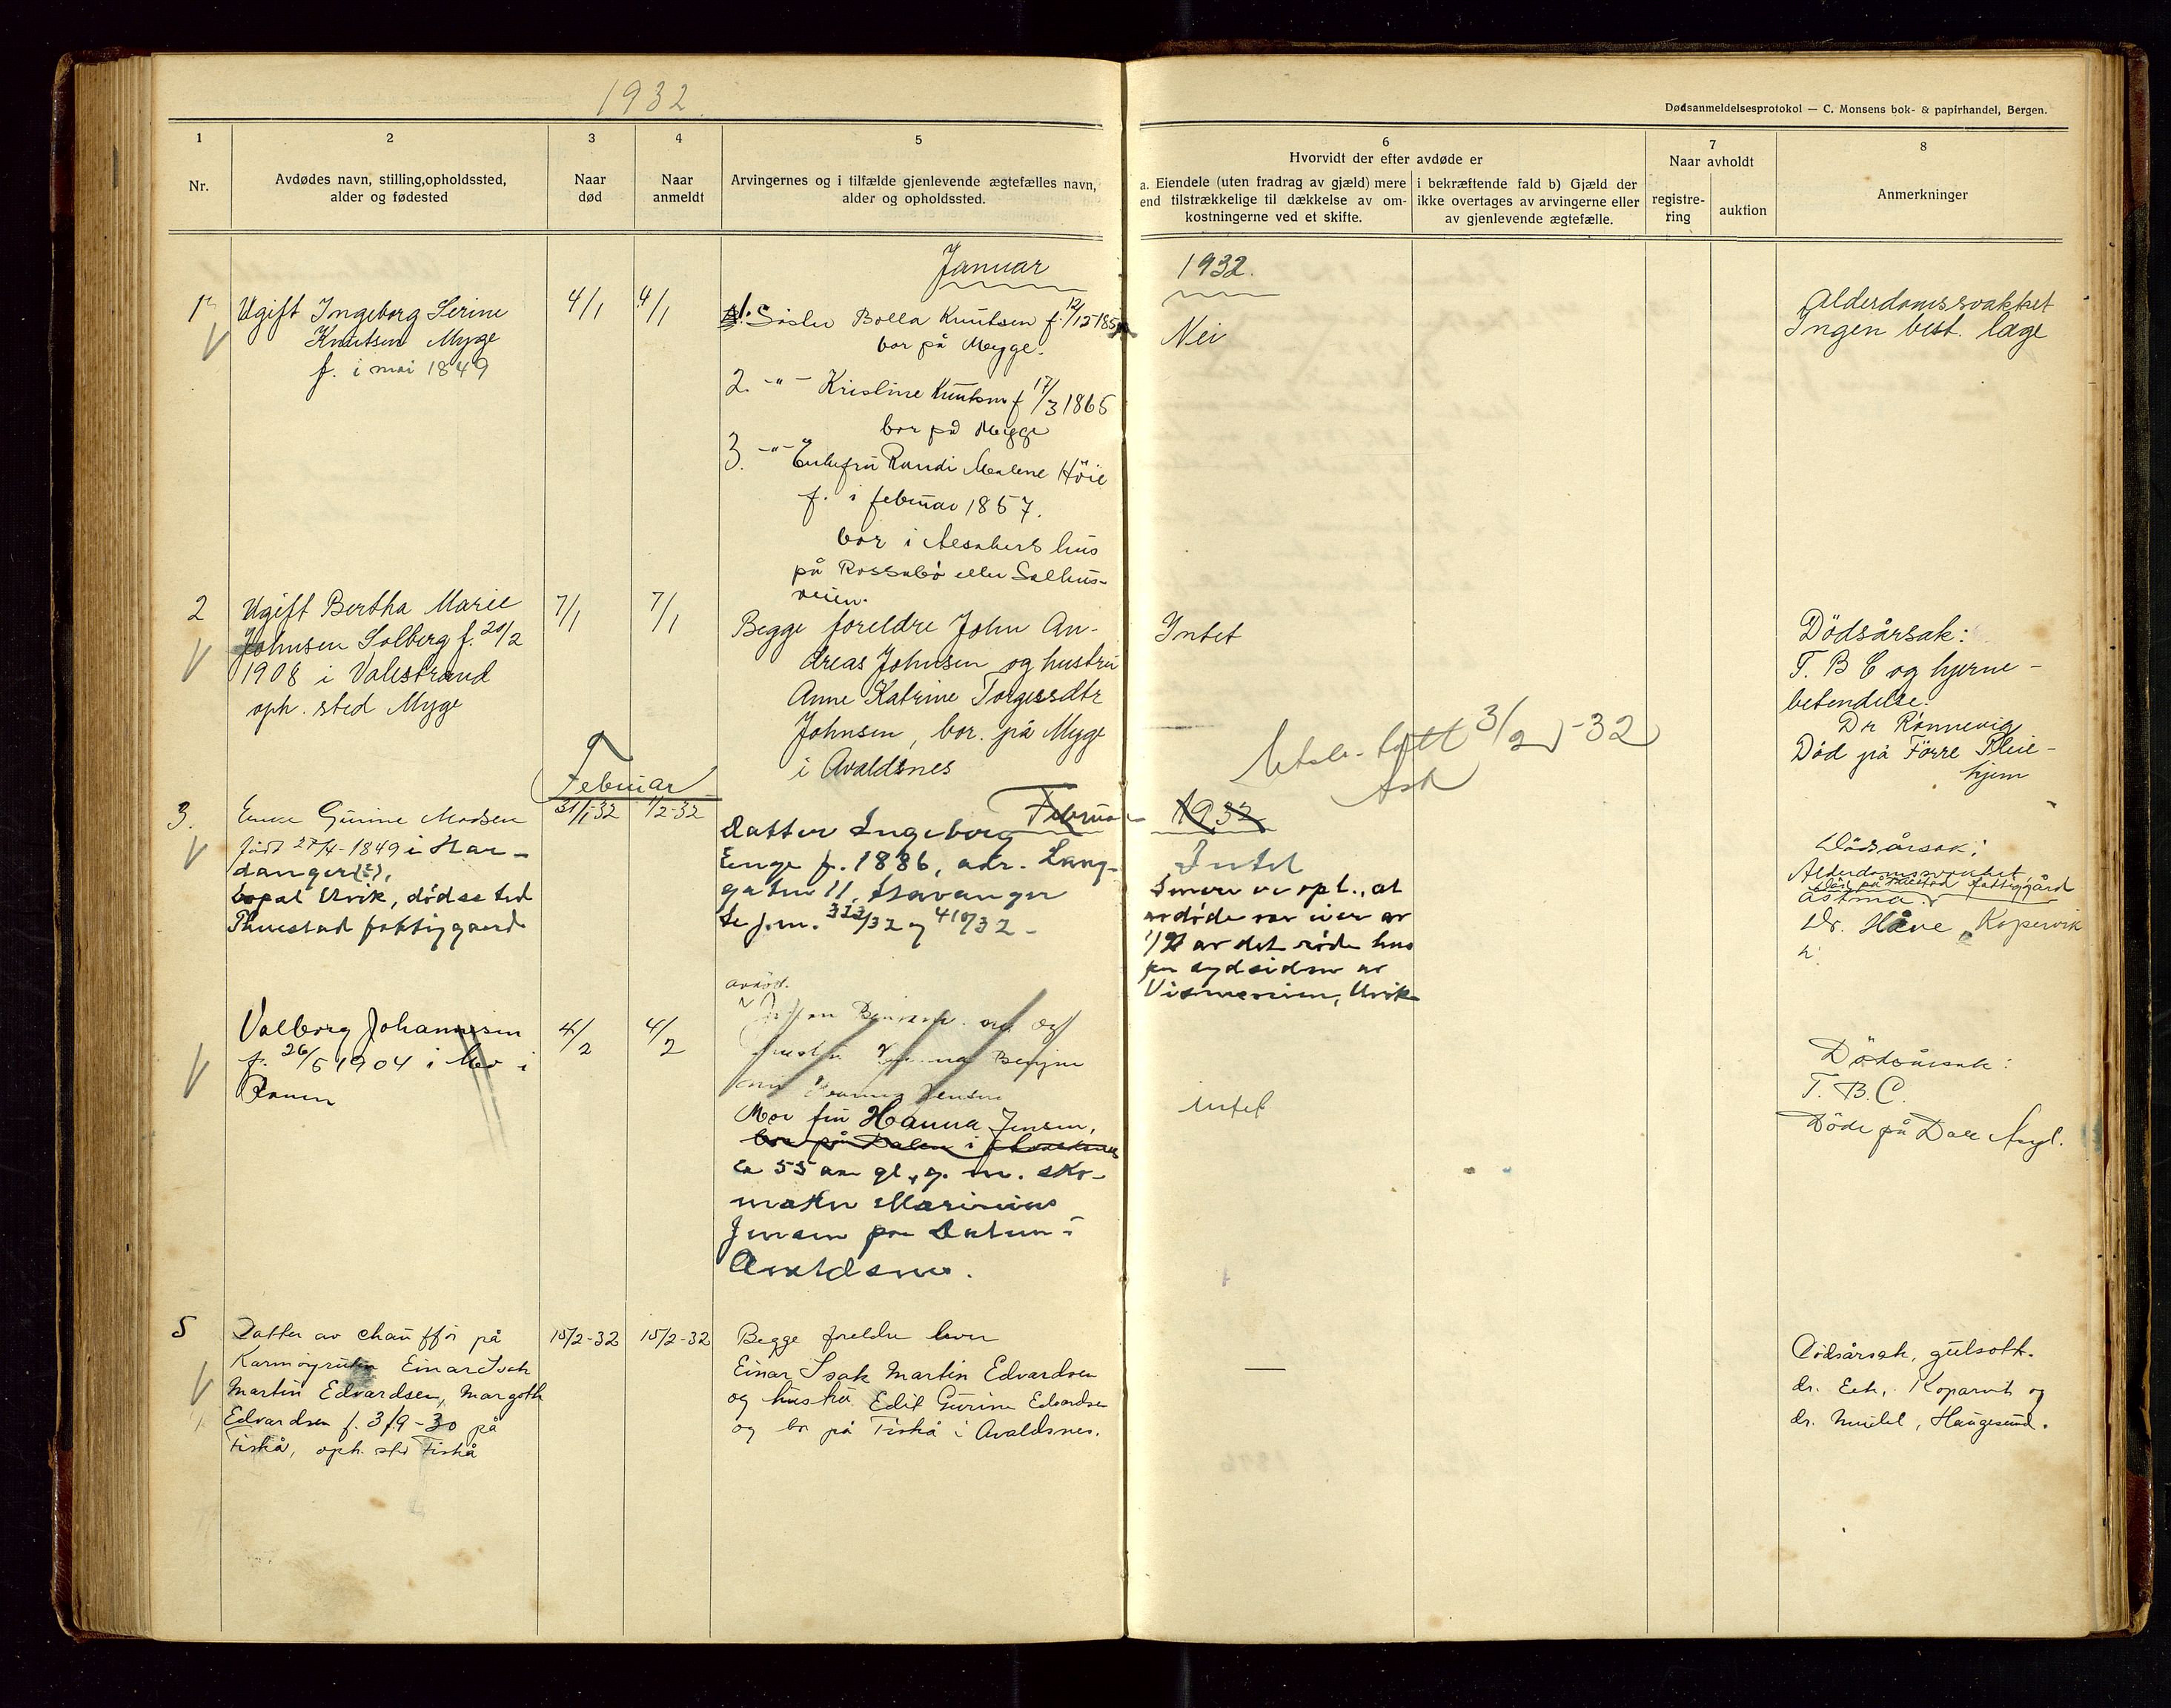 1932
Dødsanmeldelsesprotokol — C. Monsens bok- & papirhandel, Bergen.
1
Nr.
2
Avdødes navn, stilling, opholdssted,
alder og fødested
3
Naar
død
4
Naar
anmeldt
5
Arvingernes og i tilfælde gjenlevende ægtefælles navn,
alder og opholdssted.
6
Hvorvidt der efter avdøde er
a. Eiendele (uten fradrag av gjæld) mere
end tilstrækkelige til dækkelse av om-
kostningerne ved et skifte.
i bekræftende fald b) Gjæld der
ikke overtages av arvingerne eller
av gjenlevende ægtefælle.
7
Naar avholdt
registre-
ring
auktion
8
Anmerkninger
Januar
1932.
1
Ugift Ingeborg Serine
Knutsen Myge
f. i mai 1849
4/1
4/1
1. Söster Bolla Knutsen f. 12/12
bor på Mygge.
2. -"- Kristine Knutsen f 17/3 1865
bor på Mygge
3. -"- Enkefru Randi Malene Höie
f. i februar 1857.
bor i hus
på Rossabö eller Salhus-
veien.
Nei
Alderdomssvakhet
Ingen best. læge
2
Ugift Bertha Marie
Johnsen Solberg f. 20/2
1908 i Valestrand
oph. sted Myge
7/1
7/1
Begge foreldre John An-
dreas Johnsen og hustru
Anne Katrine Torgersdtr
Johnsen, bor. på Myge
i Avaldsnes
Intet
3/2 -32
Dödsårsak:
T. B C og hjerne-
betendelse.
Dr Rönnevig
Död på Förre Pleie-
hjem
Februar
Februar
1932
3.
Gurine Madsen
född 27/4-1849 i Har-
danger(?),
bopæl Utvik, dödssted
fattiggaard
31/1-32
1/2-32
Datter Ingeborg
Enge f. 1886, adr. Lang-
gaten 11, Stavanger
Se j.nr. 323/32 og 410/32 -
Intet
Senere er opl., at
avdöde var eier av
1/2 av det röde hus
paa sydsiden av
Utvik
Dödsårsak:
Alderdomssvakhet
fattiggård
astma
Dr. Håve, Kopervik
Valborg Johannesen
f. 26/5 1904 i Mo i
Ranen
4/2
4/2
Mor fru Hanna Jensen,
bor på Dalen i
ca 55 aar gl., g. m. sko-
maker Marinius
Jensen paa Dalen i
Avaldsnes.
Intet
Dödsårsak:
T. B. C.
Döde på Dale Asyl.
5
Datter av chauffør på
Karmöyruten Einar Isak
Martin Edvardsen, Margoth
Edvardsen f. 3/9-30 på
Fiskå, oph. sted Fiskå
15/2-32
15/2-32
Begge foreldre lever
Einar Isak Martin Edvardsen
og hustru Edit Gurine Edvardsen
og bor på Fiskå i Avaldsnes.
—
Dödsårsak, gulsott.
dr. Eek, Kopervik og
dr. , Haugesund.